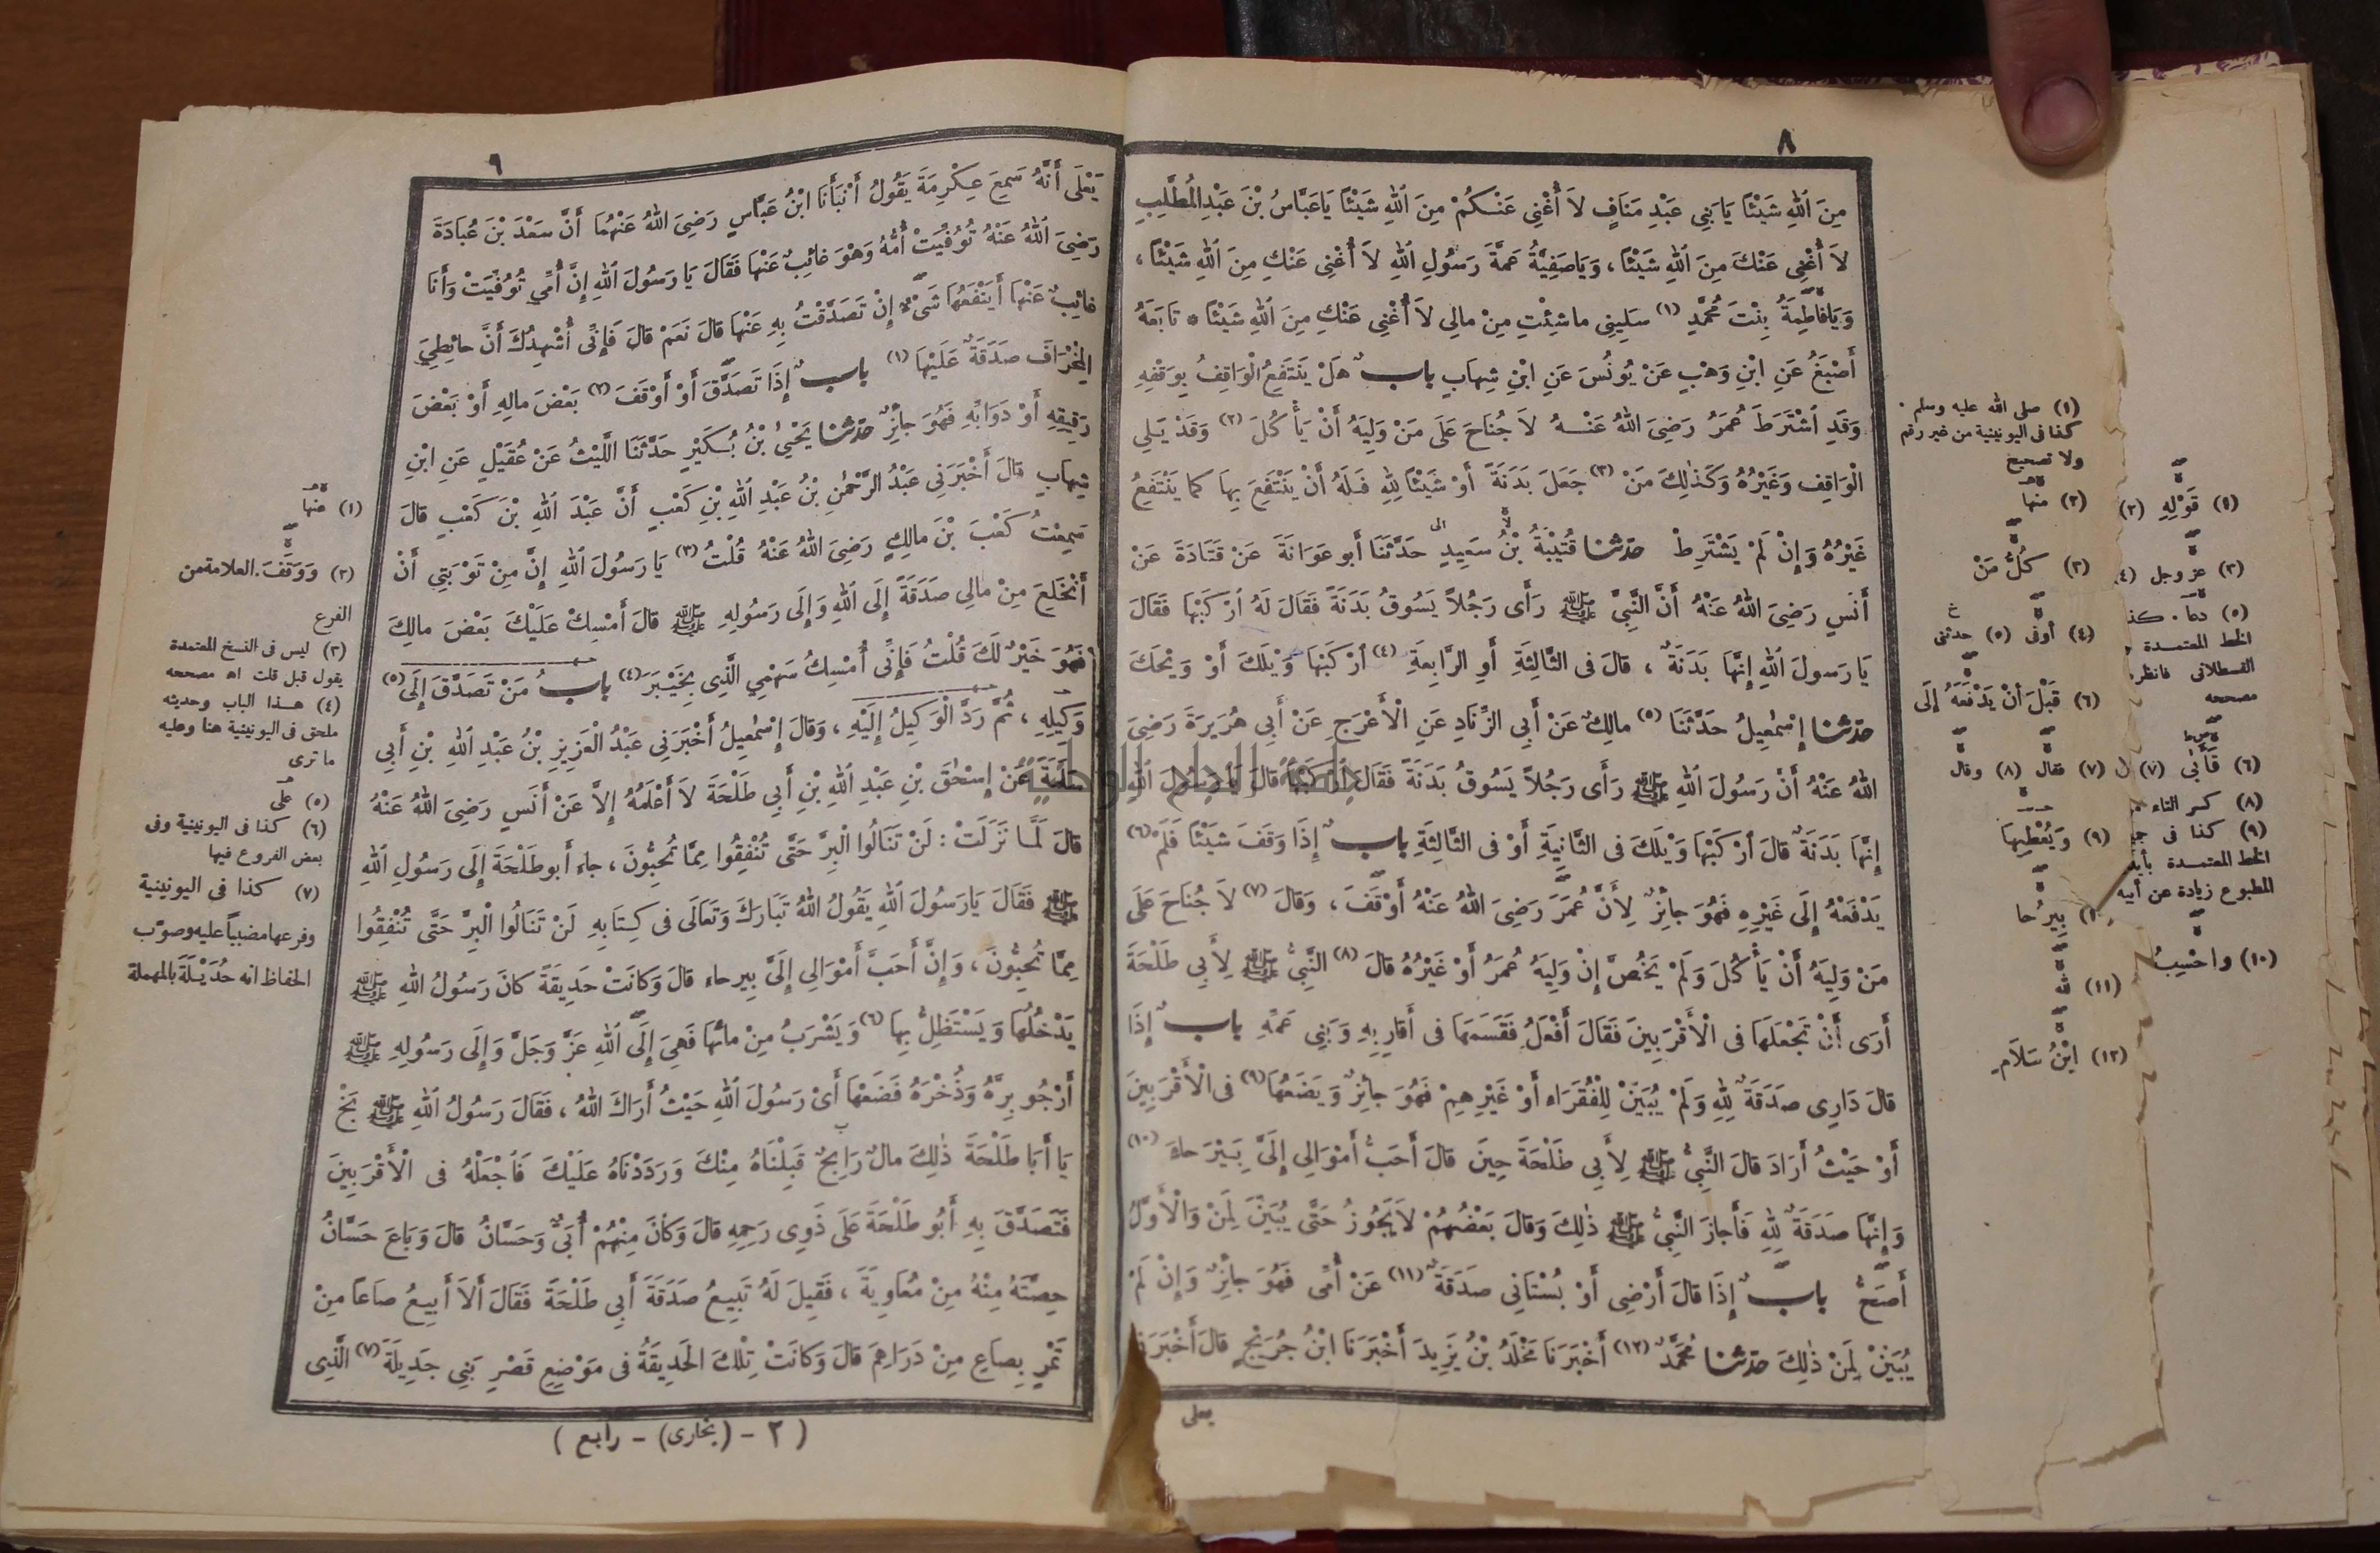 ٨
مِنَ اللهِ شَيْئًا يَا بَنِي عَبْدِ مَنَافٍ لَا أُغْنِي عَنْكُمْ مِنَ اللهِ شَيْئًا يَاعَبَّاسُ بْنَ عَبْدِ الْمُطَّلِبِ
لَا أُغْنِي عَنْكَ مِنَ اللهِ شَيْئًا ، وَيَاصَفِيَّةُ عَمَّةَ رَسُولِ اللهِ لَا أُغْنِي عَنْكِ مِنَ اللهِ شَيْئًا ،
وَيَافَاطِمَةُ بِنْتَ مُحَمَّدٍ (١) سَلِينِي مَا شِئْتِ مِنْ مَالِي لَا أُغْنِي عَنْكِ مِنَ اللهِ شَيْئًا * تَابَعَهُ
أَصْبَغُ عَنِ ابْنِ وَهْبٍ عَنْ يُونُسَ عَنِ ابْنِ شِهَابٍ بابٌ هَلْ يَنْتَفِعُ الْوَاقِفُ بِوَقْفِهِ
وَقَدِ اشْتَرَطَ عُمَرُ رَضِيَ اللهُ عَنْهُ لَا جُنَاحَ عَلَى مَنْ وَلِيَهُ أَنْ يَأْكُلَ (٢) وَقَدْ يَلِي
الْوَاقِفُ وَغَيْرُهُ وَكَذٰلِكَ مَنْ (٣) جَعَلَ بَدَنَةً أَوْ شَيْئًا لِلهِ فَلَهُ أَنْ يَنْتَفِعَ بِهَا كَمَا يَنْتَفِعُ
غَيْرُهُ وَإِنْ لَمْ يَشْتَرِطْ حدثنا قُتَيْبَةُ بْنُ سَعِيدٍ حَدَّثَنَا أَبُو عَوَانَةَ عَنْ قَتَادَةَ عَنْ
أَنَسٍ رَضِيَ اللهُ عَنْهُ أَنَّ النَّبِيَّ ﷺ رَأَى رَجُلاً يَسُوقُ بَدَنَةً فَقَالَ لَهُ ارْكَبْهَا فَقَالَ
يَا رَسُولَ اللهِ إِنَّهَا بَدَنَةٌ ، قَالَ فِي الثَّالِثَةِ أَوِ الرَّابِعَةِ (٤) ارْكَبْهَا وَيْلَكَ أَوْ وَيْحَكَ
حدثنا إِسْمٰعِيلُ حَدَّثَنَا (٥) مَالِكٌ عَنْ أَبِي الزِّنَادِ عَنِ الْأَعْرَجِ عَنْ أَبِي هُرَيْرَةَ رَضِيَ
اللهُ عَنْهُ أَنَّ رَسُولَ اللهِ ﷺ رَأَى رَجُلاً يَسُوقُ بَدَنَةً فَقَالَ ارْكَبْهَا قَالَ يَا رَسُولَ اللهِ
إِنَّهَا بَدَنَةٌ قَالَ ارْكَبْهَا وَيْلَكَ فِي الثَّانِيَةِ أَوْ فِي الثَّالِثَةِ بابٌ إِذَا وَقَفَ شَيْئًا فَلَمْ (٦)
يَدْفَعْهُ إِلَى غَيْرِهِ فَهُوَ جَائِزٌ لِأَنَّ عُمَرَ رَضِيَ اللهُ عَنْهُ أَوْقَفَ ، وَقَالَ (٧) لَا جُنَاحَ عَلَى
مَنْ وَلِيَهُ أَنْ يَأْكُلَ وَلَمْ يَخُصَّ إِنْ وَلِيَهُ عُمَرُ أَوْ غَيْرُهُ قَالَ (٨) النَّبِيُّ ﷺ لِأَبِي طَلْحَةَ
أَرَى أَنْ تَجْعَلَهَا فِي الْأَقْرَبِينَ فَقَالَ أَفْعَلُ فَقَسَمَهَا فِي أَقَارِبِهِ وَبَنِي عَمِّهِ بابٌ إِذَا
قَالَ دَارِي صَدَقَةٌ لِلهِ وَلَمْ يُبَيِّنْ لِلْفُقَرَاءِ أَوْ غَيْرِهِمْ فَهُوَ جَائِزٌ وَيَضَعُهَا (٩) فِي الْأَقْرَبِينَ
أَوْ حَيْثُ أَرَادَ قَالَ النَّبِيُّ ﷺ لِأَبِي طَلْحَةَ حِينَ قَالَ أَحَبُّ أَمْوَالِي إِلَيَّ بَيْرَحَاءَ (١٠)
وَإِنَّهَا صَدَقَةٌ لِلهِ فَأَجَازَ النَّبِيُّ ﷺ ذٰلِكَ وَقَالَ بَعْضُهُمْ لَا يَجُوزُ حَتَّى يُبَيِّنَ لِمَنْ وَالْأَوَّلُ
أَصَحُّ بابٌ إِذَا قَالَ أَرْضِي أَوْ بُسْتَانِي صَدَقَةٌ (١١) عَنْ أُمِّي فَهُوَ جَائِزٌ وَإِنْ لَمْ
يُبَيِّنْ لِمَنْ ذٰلِكَ حدثنا مُحَمَّدٌ (١٢) أَخْبَرَنَا مَخْلَدُ بْنُ يَزِيدَ أَخْبَرَنَا ابْنُ جُرَيْجٍ قَالَ أَخْبَرَنِي
يعلى
(١) صلى الله عليه وسلم .
كذا فى اليونينية من غير رقم
ولا تصحيح
(٢) منها
(٣) كُلُّ مَنْ
(٤) أوفى (٥) حدثنى
(٦) قَبْلَ أَنْ يَدْفَعَهُ إِلَى
(٧) فقال (٨) وقال
(٩) وَيُعْطِيهَا
بِيرُحَا
(١١) لله
(١٢) ابْنُ سَلَامٍ
(٤) قَوْلِهِ (٢)
(٣) عز وجل (٤)
(٥) كذ
الخط المعتمدة
القسطلانى فانظره
مصححه
(٦) قَأَبَى (٧)
(٨) كسر التاء
(٩) كذا فى
الخط المعتمدة
المطبوع زيادة عن أبيه
(١٠) واحْسِبُ
٩
يَعْلَى أَنَّهُ سَمِعَ عِكْرِمَةَ يَقُولُ أَنْبَأَنَا ابْنُ عَبَّاسٍ رَضِيَ اللهُ عَنْهُمَا أَنَّ سَعْدَ بْنَ عُبَادَةَ
رَضِيَ اللهُ عَنْهُ تُوُفِّيَتْ أُمُّهُ وَهْوَ غَائِبٌ عَنْهَا فَقَالَ يَا رَسُولَ اللهِ إِنَّ أُمِّي تُوُفِّيَتْ وَأَنَا
غَائِبٌ عَنْهَا أَيَنْفَعُهَا شَيْءٌ إِنْ تَصَدَّقْتُ بِهِ عَنْهَا قَالَ نَعَمْ قَالَ فَإِنِّي أُشْهِدُكَ أَنَّ حَائِطِيَ
الْمِخْرَافَ صَدَقَةٌ عَلَيْهَا (١) بابٌ إِذَا تَصَدَّقَ أَوْ أَوْقَفَ (٢) بَعْضَ مَالِهِ أَوْ بَعْضَ
رَقِيقِهِ أَوْ دَوَابِّهِ فَهُوَ جَائِزٌ حدثنا يَحْيَى بْنُ بُكَيْرٍ حَدَّثَنَا اللَّيْثُ عَنْ عُقَيْلٍ عَنِ ابْنِ
شِهَابٍ قَالَ أَخْبَرَنِي عَبْدُ الرَّحْمٰنِ بْنُ عَبْدِ اللهِ بْنِ كَعْبٍ أَنَّ عَبْدَ اللهِ بْنَ كَعْبٍ قَالَ
سَمِعْتُ كَعْبَ بْنَ مَالِكٍ رَضِيَ اللهُ عَنْهُ قُلْتُ (٣) يَا رَسُولَ اللهِ إِنَّ مِنْ تَوْبَتِي أَنْ
أَنْخَلِعَ مِنْ مَالِي صَدَقَةً إِلَى اللهِ وَإِلَى رَسُولِهِ ﷺ قَالَ أَمْسِكْ عَلَيْكَ بَعْضَ مَالِكَ
فَهُوَ خَيْرٌ لَكَ قُلْتُ فَإِنِّي أُمْسِكُ سَهْمِي الَّذِي بِخَيْبَرَ (٤) بابُ مَنْ تَصَدَّقَ إِلَى (٥)
وَكِيلِهِ ، ثُمَّ رَدَّ الْوَكِيلُ إِلَيْهِ ، وَقَالَ إِسْمٰعِيلُ أَخْبَرَنِي عَبْدُ الْعَزِيزِ بْنُ عَبْدِ اللهِ بْنِ أَبِي
سَلَمَةَ عَنْ إِسْحٰقَ بْنِ عَبْدِ اللهِ بْنِ أَبِي طَلْحَةَ لَا أَعْلَمُهُ إِلاَّ عَنْ أَنَسٍ رَضِيَ اللهُ عَنْهُ
قَالَ لَمَّا نَزَلَتْ : لَنْ تَنَالُوا الْبِرَّ حَتَّى تُنْفِقُوا مِمَّا تُحِبُّونَ ، جَاءَ أَبُو طَلْحَةَ إِلَى رَسُولِ اللهِ
ﷺ فَقَالَ يَا رَسُولَ اللهِ يَقُولُ اللهُ تَبَارَكَ وَتَعَالَى فِي كِتَابِهِ لَنْ تَنَالُوا الْبِرَّ حَتَّى تُنْفِقُوا
مِمَّا تُحِبُّونَ ، وَإِنَّ أَحَبَّ أَمْوَالِي إِلَيَّ بِيرحاء قَالَ وَكَانَتْ حَدِيقَةً كَانَ رَسُولُ اللهِ ﷺ
يَدْخُلُهَا وَيَسْتَظِلُّ بِهَا (٦) وَيَشْرَبُ مِنْ مَائِهَا فَهِيَ إِلَى اللهِ عَزَّ وَجَلَّ وَإِلَى رَسُولِهِ ﷺ
أَرْجُو بِرَّهُ وَذُخْرَهُ فَضَعْهَا أَيْ رَسُولَ اللهِ حَيْثُ أَرَاكَ اللهُ ، فَقَالَ رَسُولُ اللهِ ﷺ بَخْ
يَا أَبَا طَلْحَةَ ذٰلِكَ مَالٌ رَابِحٌ قَبِلْنَاهُ مِنْكَ وَرَدَدْنَاهُ عَلَيْكَ فَاجْعَلْهُ فِي الْأَقْرَبِينَ
فَتَصَدَّقَ بِهِ أَبُو طَلْحَةَ عَلَى ذَوِي رَحِمِهِ قَالَ وَكَانَ مِنْهُمْ أُبَيٌّ وَحَسَّانُ قَالَ وَبَاعَ حَسَّانُ
حِصَّتَهُ مِنْهُ مِنْ مُعَاوِيَةَ ، فَقِيلَ لَهُ تَبِيعُ صَدَقَةَ أَبِي طَلْحَةَ فَقَالَ أَلَا أَبِيعُ صَاعًا مِنْ
تَمْرٍ بِصَاعٍ مِنْ دَرَاهِمَ قَالَ وَكَانَتْ تِلْكَ الْحَدِيقَةُ فِي مَوْضِعِ قَصْرِ بَنِي جَدِيلَةَ (٧) الَّذِي
( ٢ - (بخارى) - رابع )
(١) عَنْهَا
(٢) وَوَقَفَ . العلامة من
الفرع
(٣) ليس فى النسخ المعتمدة
يقول قبل قلت اه مصححه
(٤) هذا الباب وحديثه
ملحق فى اليونينية هنا وعليه
ما ترى
(٥) عَلَى
(٦) كذا فى اليونينية وفى
بعض الفروع فيها
(٧) كذا فى اليونينية
وفرعها مضبباً عليه وصوّب
الحفاظ انه حُدَيْلَةَ بالمهملة